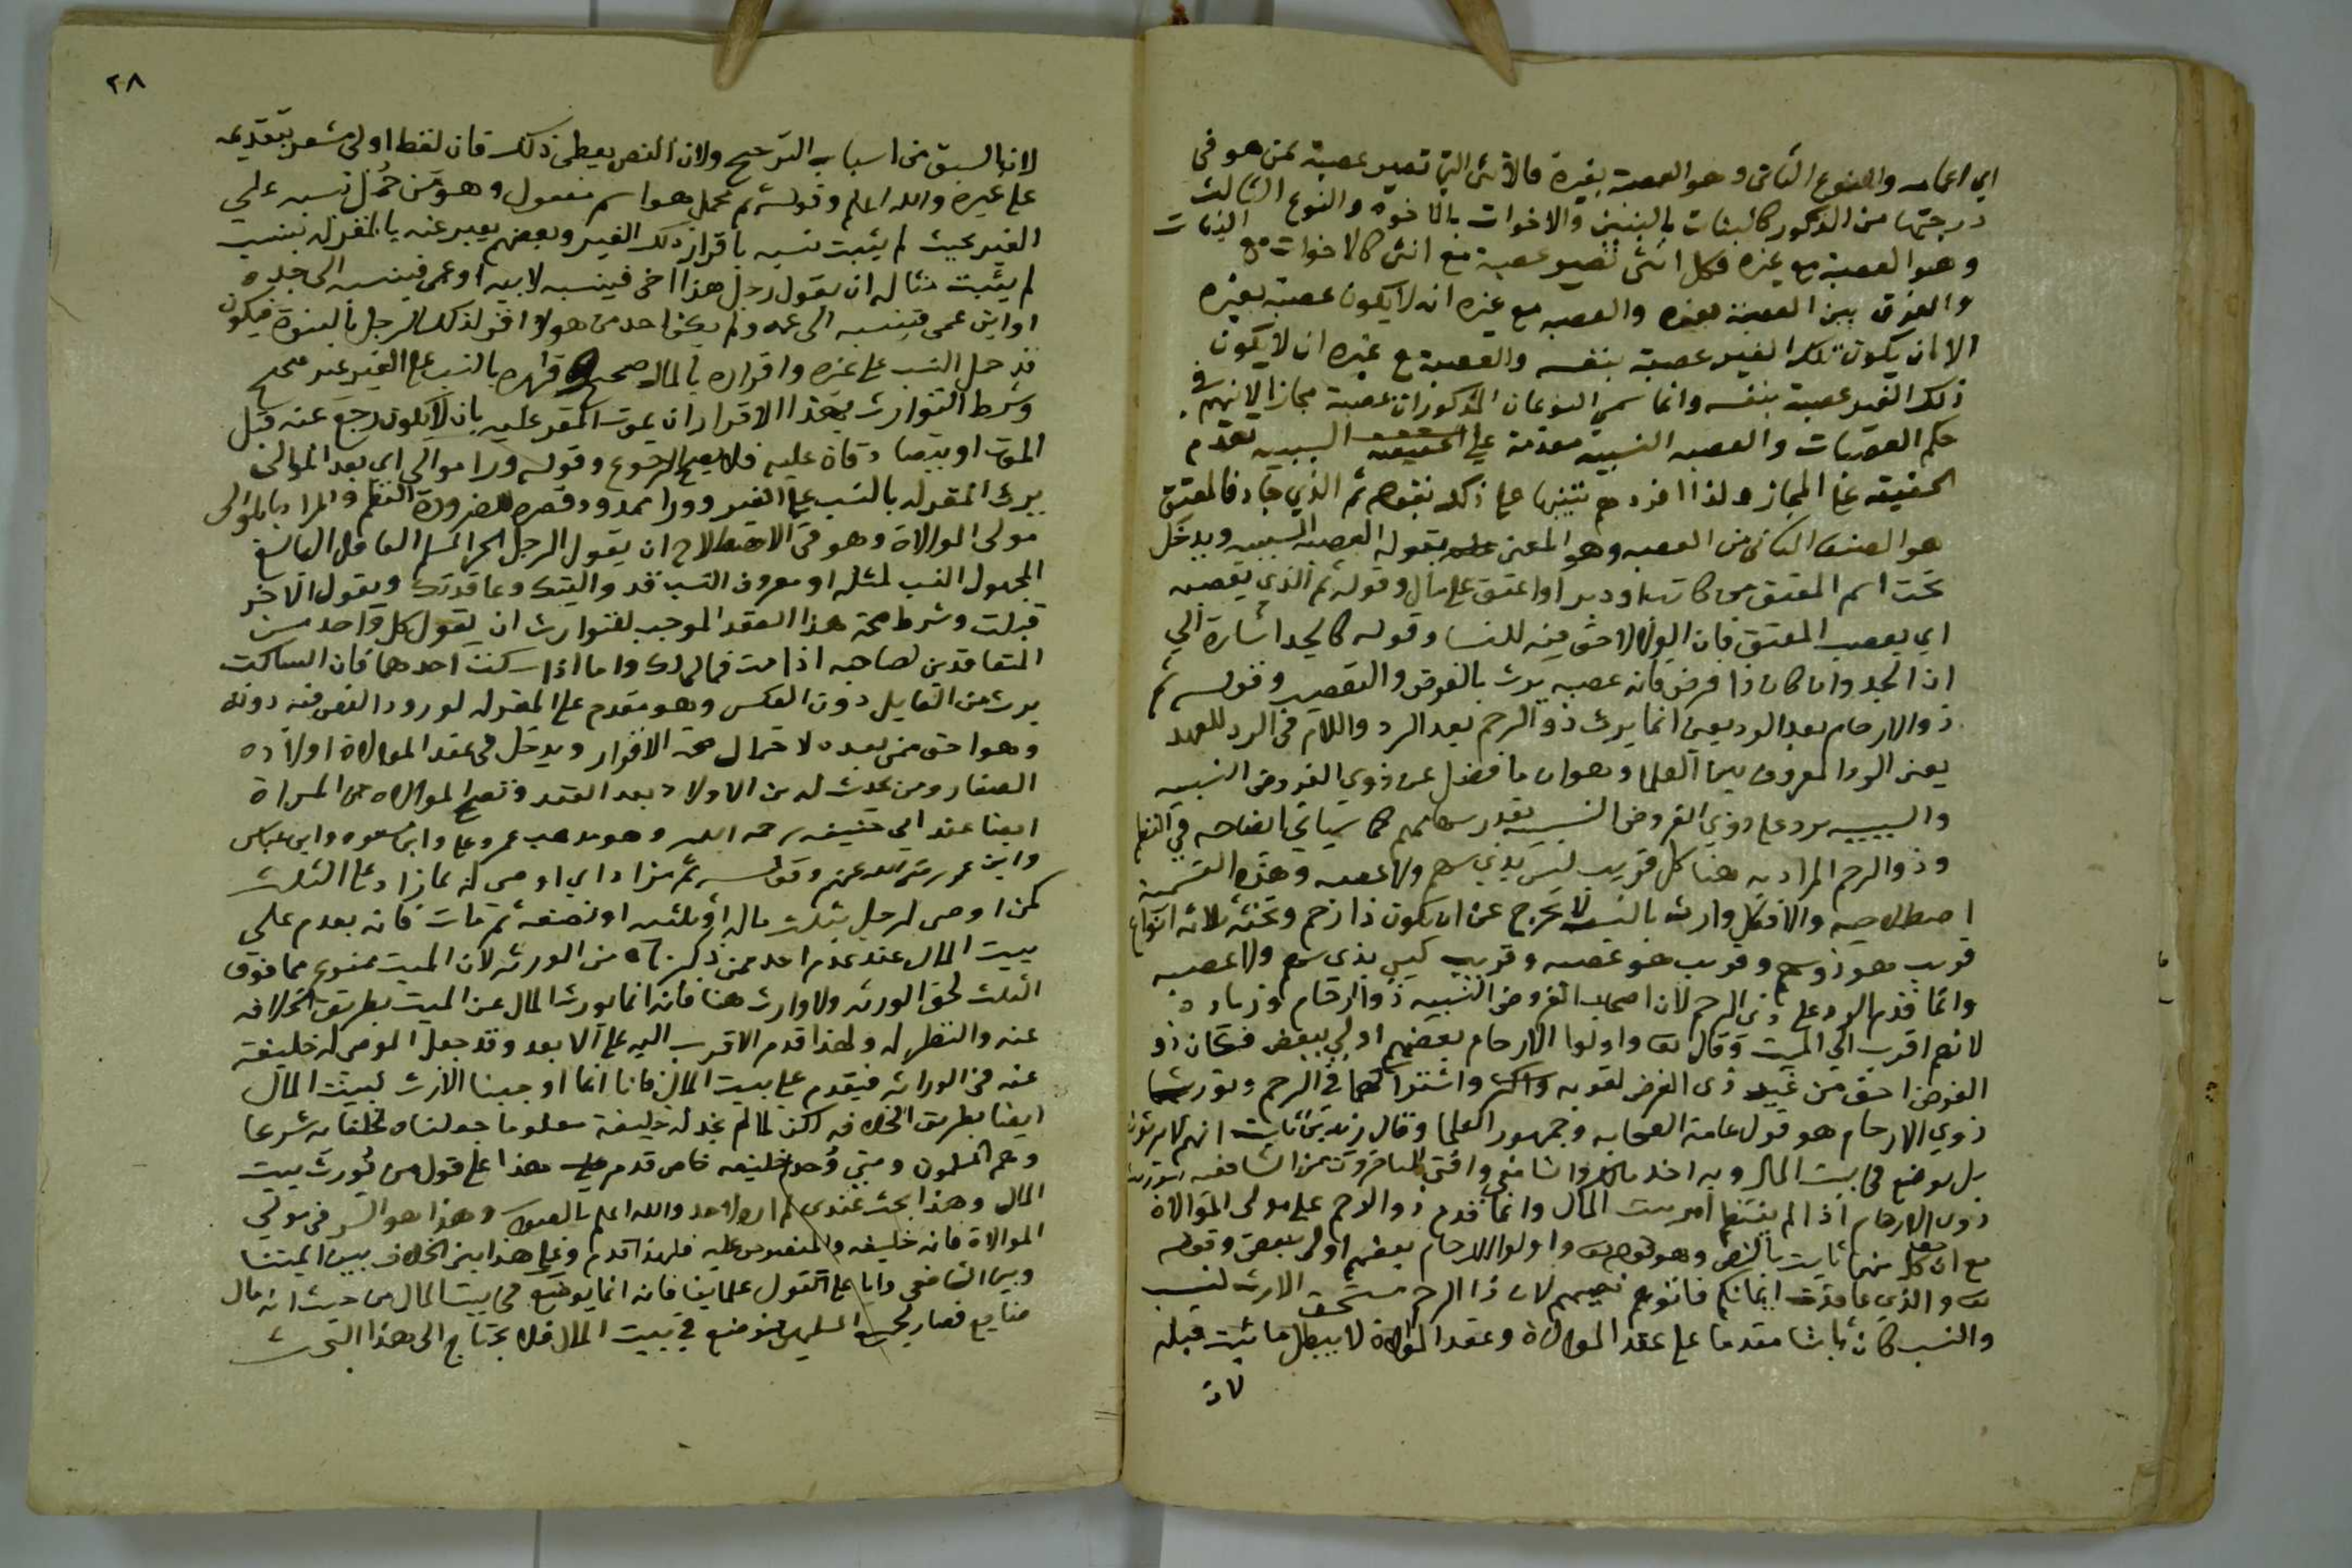 اي اعمامه والنوع الثاني وهو العصبة بغيره فالانثى التي تصير عصبة بمن هو في
درجتها من الذكور كالبنات بالبنين والاخوات بالاخوة والنوع الثالث
وهو العصبة مع غيره فكل انثى تصير عصبة مع انثى كالاخوات مع البنات
والفرق بين العصبة بغيره والعصبه مع غيره انه لا يكون عصبة بغيره
الا ان يكون ذلك الغير عصبة بنفسه والعصبة مع غيره ان لا يكون
ذلك الغير عصبة بنفسه وانما سمي النوعان المذكوران عصبة مجازا لانهم في
حكم العصبات والعصبه النسبية مقدمة على السببيه تقدم
الحقيقه على المجاز ولذا على ذلك بقوله ثم الذي جاد فالمعتق
هو الصنف الثاني من العصبه وهو المعنى بقوله العصبه السببيه ويدخل
تحت اسم المعتق من كاتب او دبر او اعتق على مال وقوله ثم الذي يعصبه
اي يعصب المعتق فان الولا لا حق فيه للنسا وقوله كالجد اشارة الى
ان الجد وان كان ذا فرض فانه عصبه يرث بالفرض والتعصيب وقوله ثم
ذوالارحام بعد الرد يعني انما يرث ذوالرحم بعد الرد واللام في الرد للعهد
يعني الرد المعروف بين العلما وهو ان ما فضل عن ذوي الفروض النسبيه
والسببيه يرد على ذوي الفروض النسبيه بقدر سهامهم كما سياتي ايضاحه في النظم
وذو الرحم المراد به هنا كل قريب ليس بذي سهم ولا عصبه وهذه القسمة
اصطلاحيه والا فكل وارث بالنسب لا يخرج عن ان يكون ذا رحم وتحته ثلاثه انواع
قريب هو ذوسهم وقريب هو عصبه وقريب ليس بذي سهم ولا عصبه
وانما قدم الرد على ذي الرحم لان اصحاب الفروض النسبيه ذوا ارحام وزيادة
لانهم اقرب الى الميت وقال تعالى واولوا الارحام بعضهم اولى ببعض فكان ذو
الفرض احق من غير ذي الفرض لقوته واشتراكهما في الرحم وتوريث
ذوي الارحام هو قول عامة الصحابه وجمهور العلما وقال زيد بن ثابت انهم لا يرثون
بل يوضع في بيت المال وبه اخذ مالك والشافعي وافتى المتاخرون من الشافعيه بتوريث
ذوي الارحام اذا لم ينتظم امر بيت المال وانما قدم ذوالرحم على مولى الموالاة
مع ان كل منهما ثابت بالنص وهو قوله تعالى واولوا الارحام بعضهم اولى ببعض وقوله
تعالى والذين عاقدت ايمانكم فاتوهم نصيبهم لان ذا الرحم مستحق الارث بنسب
والنسب كان ثابتا مقدما على عقد الموالاة وعقد الموالاة لا يبطل ما ثبت قبله
لان
٢٨
لان السبق من اسباب الترجيح ولان النص يعطي ذلك فان لفظ اولى مشعر بتقديمه
على غيره والله اعلم وقوله ثم محمل هو اسم مفعول وهو من حمل نسبه على
الغير بحيث لم يثبت نسبه باقرار ذلك الغير وبعضهم يعبر عنه بالمقر له بنسب
لم يثبت مثاله ان يقول رجل هذا اخي فينسبه لابيه او عمي فينسبه الى جده
او ابن عمي فينسبه الى عمه ولم يكن احد من هولا اقر لذلك الرجل بالبنوة فيكون
قد حمل النسب على غيره واقراره بالمال صحيح واقراره بالنسب على الغير غير صحيح
وشرط التوارث بهذا الاقرار ان يموت المقر عليه بان لا يكون رجع عنه قبل
الموت او يتصادقا عليه فلا يصح الرجوع وقوله ورا موالي اي بعد الموالي
يرث المقر له بالنسب على الغير وورا ممدود وقصره لضرورة النظم والمراد بالموالي
مولى الموالاة وهو في الاصطلاح ان يقول الرجل الحر المسلم العاقل البالغ
المجهول النسب لمثله او معروف النسب قد واليتك وعاقدتك ويقول الاخر
قبلت وشرط صحة هذا العقد الموجب للتوارث ان يقول كل واحد من
المتعاقدين لصاحبه اذا مت فمالي لك واما اذا سكت احدهما فان الساكت
يرث من القايل دون العكس وهو مقدم على المقر له لورود النص فيه دونه
وهو احق ممن بعده لاحتمال صحة الاقرار ويدخل في عقد الموالاة اولاده
الصغار ومن يحدث له من الاولاد بعد العقد وتصح الموالاه من المراة
ايضا عند ابي حنيفه رحمه الله وهو مذهب عمر وعلي وابن مسعود وابن عباس
وابن عمر رضي الله عنهم وقوله ثم مزاد اي اوصى له بما زاد على الثلث
كمن اوصى لرجل بثلث ماله او ثلثيه او نصفه ثم مات فانه يقدم على
بيت المال عند عدم احد ممن ذكرناه من الورثه لان الميت ممنوع مما فوق
الثلث لحق الورثه ولا وارث هنا فانه انما يورث المال عن الميت بطريق الخلافه
عنه والنظر له ولهذا قدم الاقرب اليه على الابعد وقد جعل الموصى له خليفة
عنه في الوراثه فيقدم على بيت المال فانا انما اوجبنا الارث لبيت المال
ايضا بطريق الخلافه لكن لما لم نجد له خليفة معلوما جعلناه لخلفايه شرعا
وهم المسلمون ومتى وجد خليفه خاص قدم هذا على قول من يورث بيت
المال وهذا بحث عندي لم اره لاحد والله اعلم بالصواب وهذا هو السر في مولى
الموالاة فانه خليفه والمنصوص عليه فلهذا قدم وعلى هذا ينبني الخلاف بين ايمتنا
وبين الشافعي واما على القول علماينا فانه انما يوضع في بيت المال من حيث انه مال
ضايع فصار لجميع المسلمين فيوضع في بيت المال فلا يحتاج الى هذا البحث